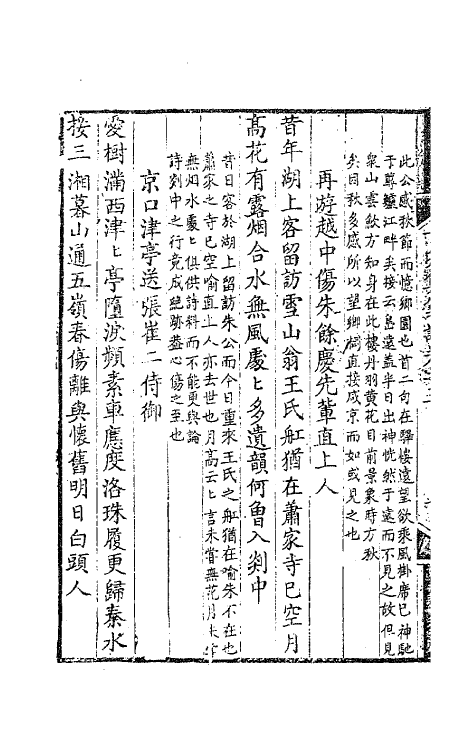 此公感秋節而憶鄉園也首二句在驛樓遠望欲乘風掛席已神馳
于尊鱸江畔矣接云島遠盖半日出神恍然于遠而不見之故但見
衆山雲歛方知身在此樓丹羽黃花目前景象時方秋
矣因秋多感所以望鄉關直接咸京而如或見之也
再遊越中傷朱餘慶先輩直上人
昔年湖上客留訪雪山翁王氏舡猶在蕭家寺已空月
髙花有露烟合水無風處〻多遺韻何曾入剡中
昔日客於湖上留訪朱公而今日重來王氏之舡猶在喻朱不在也
蕭家之寺已空喻直上人亦去世也月高云〻言未嘗無花月未嘗
無烟水處〻俱供詩料而不能更與論
詩剡中之行竟成絕跡盖心傷之至也
京口津亭送張崔二侍御
愛樹滿西津〻亭墮淚頻素車應度洛珠履更歸秦水
接三湘暮山通五嶺春傷離與懷舊明日白頭人